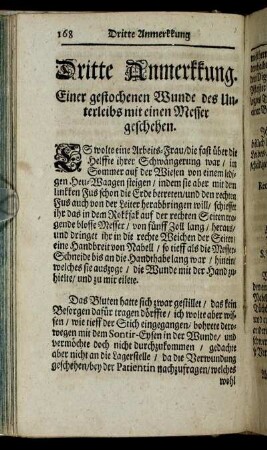 168 Dritte Anmerkkung
Dritte Anmerkkung.
Einer gestochenen Wunde des Un-
terleibs mit einen Messer
geschehen.
ES wolte eine Arbeits-Frau/die fast über die
Helffte ihrer Schwangerung war / im
Sommer auf der Wiesen von einem ledi-
gen Heu-Waagen steigen / indem sie aber mit dem
linkken Fus schon die Erde betreten/und den rechten
Fus auch von der Leiter herabbringen will/ schiesset
ihr das in dem Rokksak auf der rechten Seiten tra-
gende blosse Messer / von fünff Zoll lang / heraus/
und dringet ihr in die rechte Weichen der Seiten/
eine Handbreit von Nabell / so tieff als die Messer-
Schneide bis an die Handthabe lang war / hinein/
welches sie auszoge / die Wunde mit der Hand zu-
hielte/und zu mir eilete.
Das Bluten hatte sich zwar gestillet / das kein
Besorgen dafür tragen dörffte / ich wolte aber wis-
sen / wie tieff der Stich eingegangen/ bohrete derw-
wegen mit dem Sontir-Eysen in der Wunde / und
vermöchte doch nicht durchzukommen / gedachte
aber nicht an die Lagerstelle / da die Verwundung
geschehen/bey der Patientin nachzufragen/welches
wohl